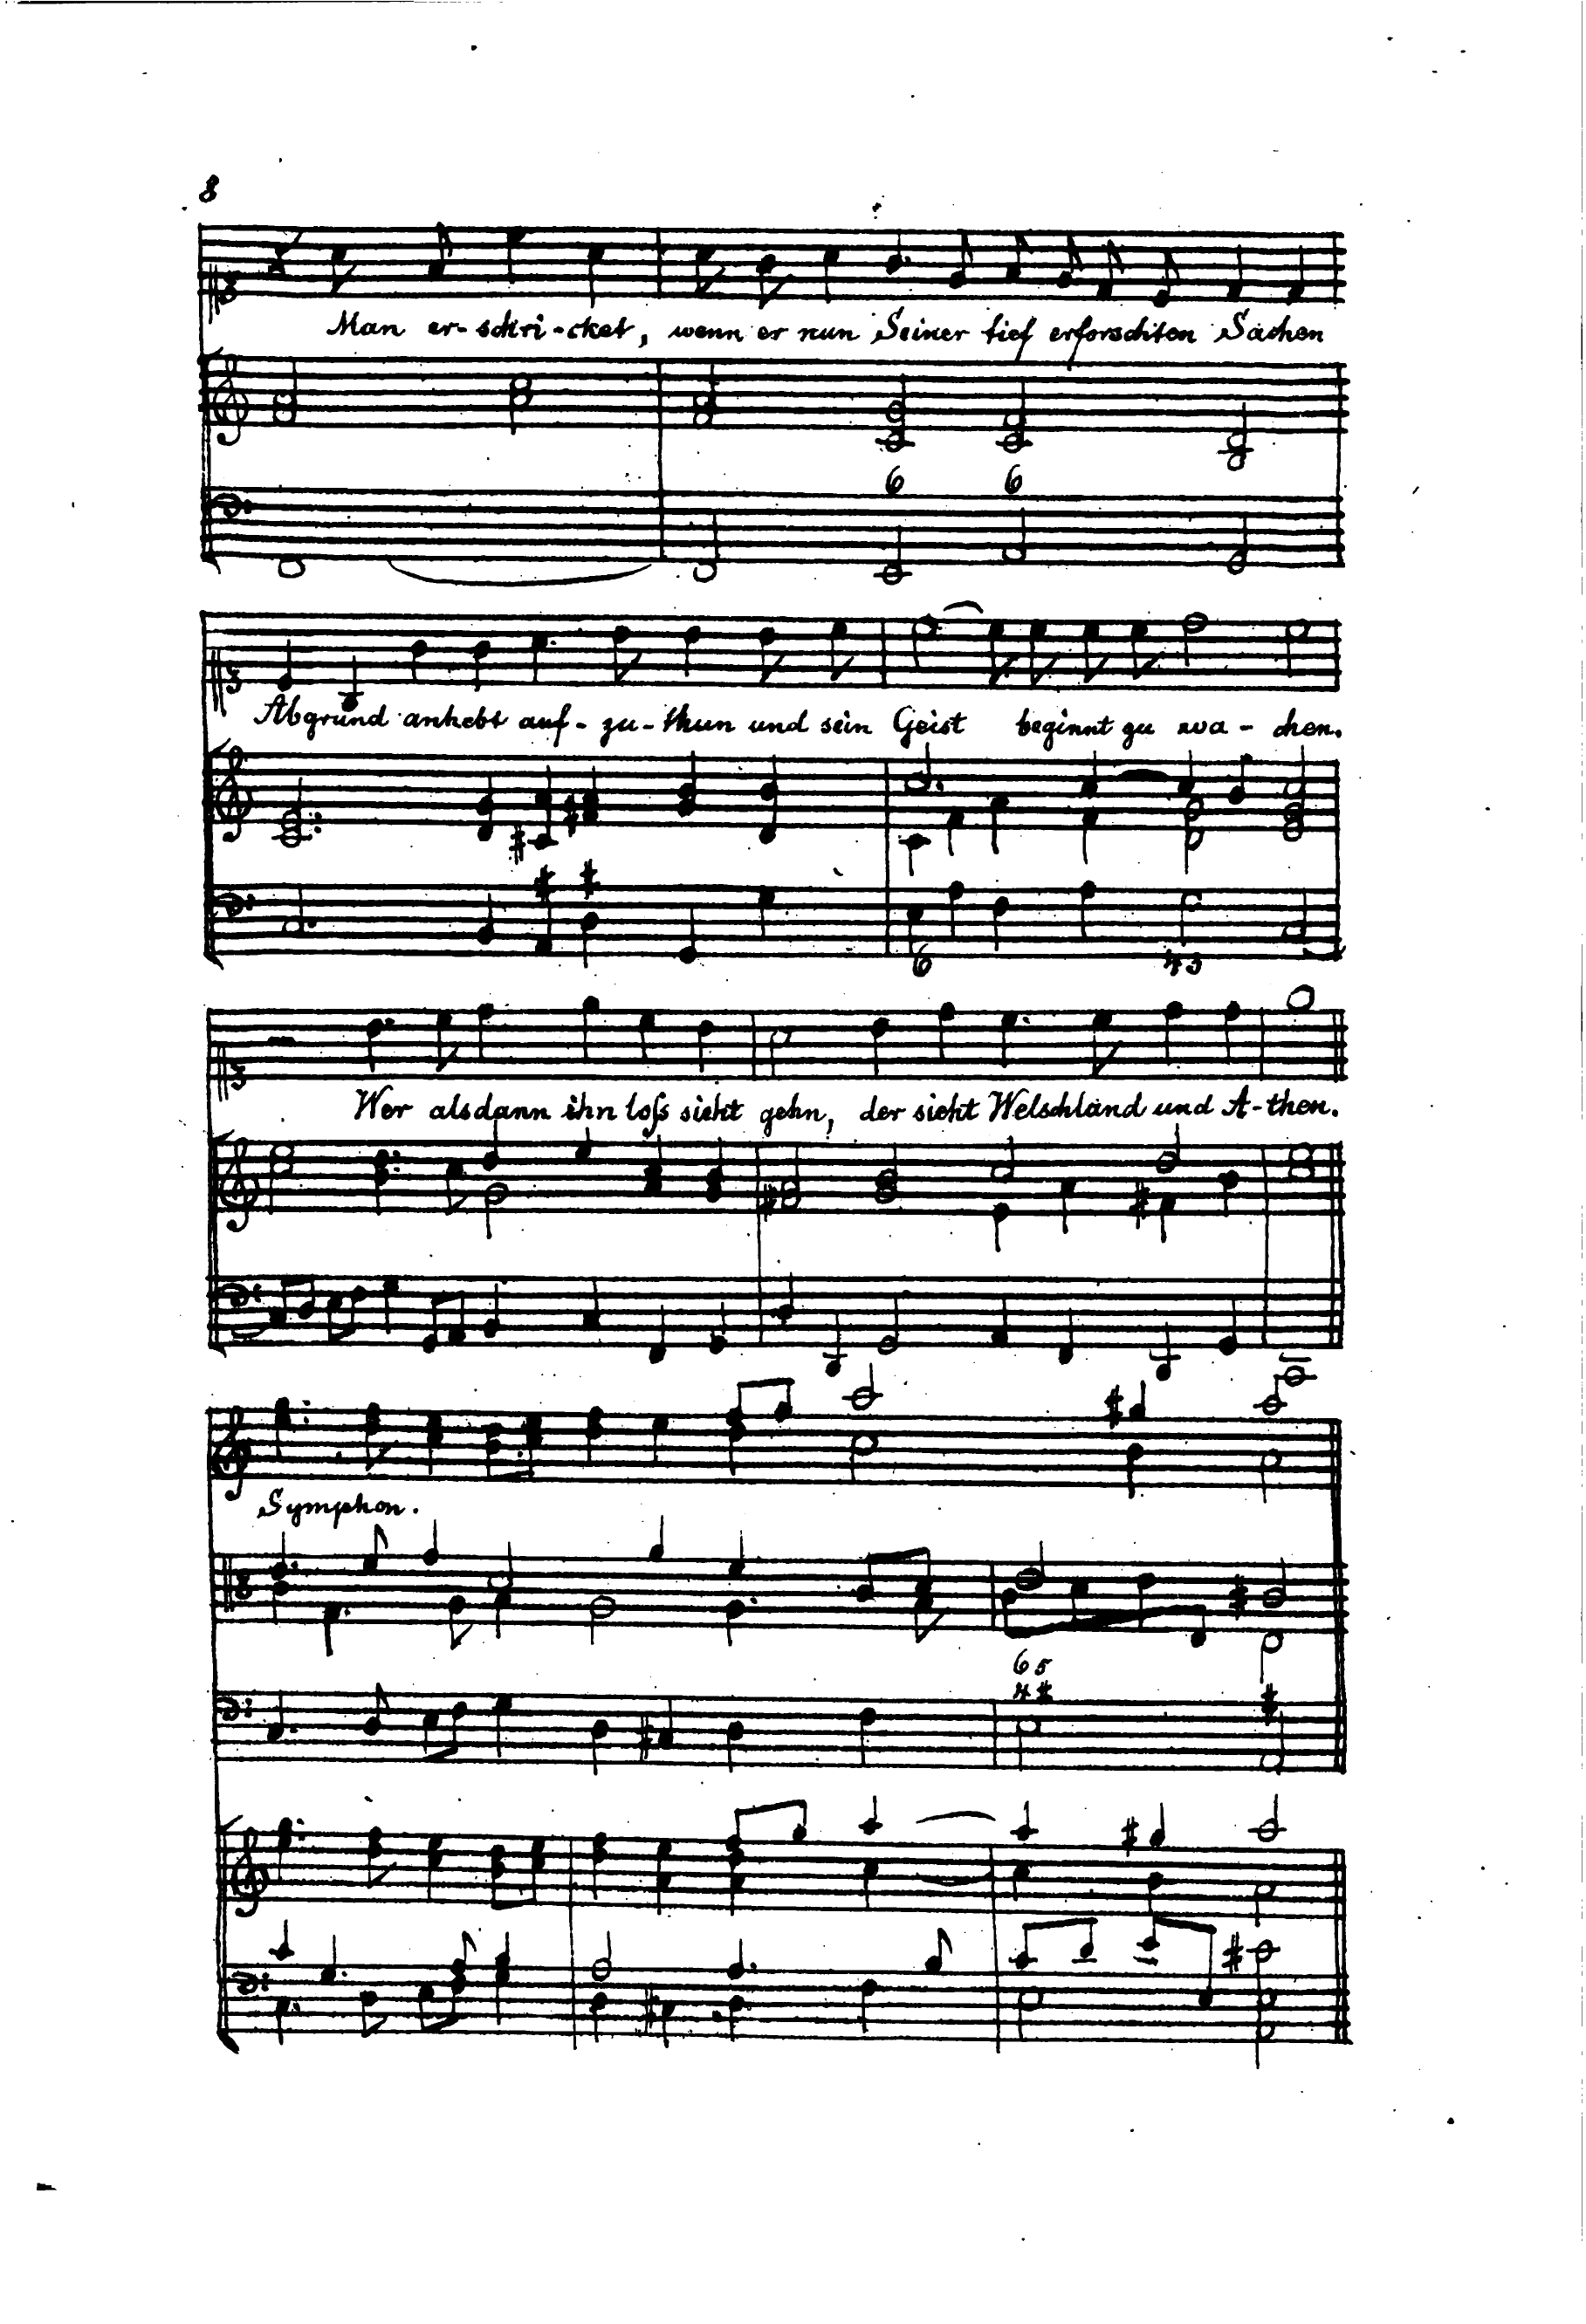 8
Man er-schri-cket, wenn er nun Seiner tief erforschten Sachen
6 6
Abgrund anhebt auf-zu-thun und sein Geist beginnt zu wa-chen.
6 43
Wer alsdann ihn loſs sieht gehn, der sieht Welschland und A-then.
Symphon.
65
4#